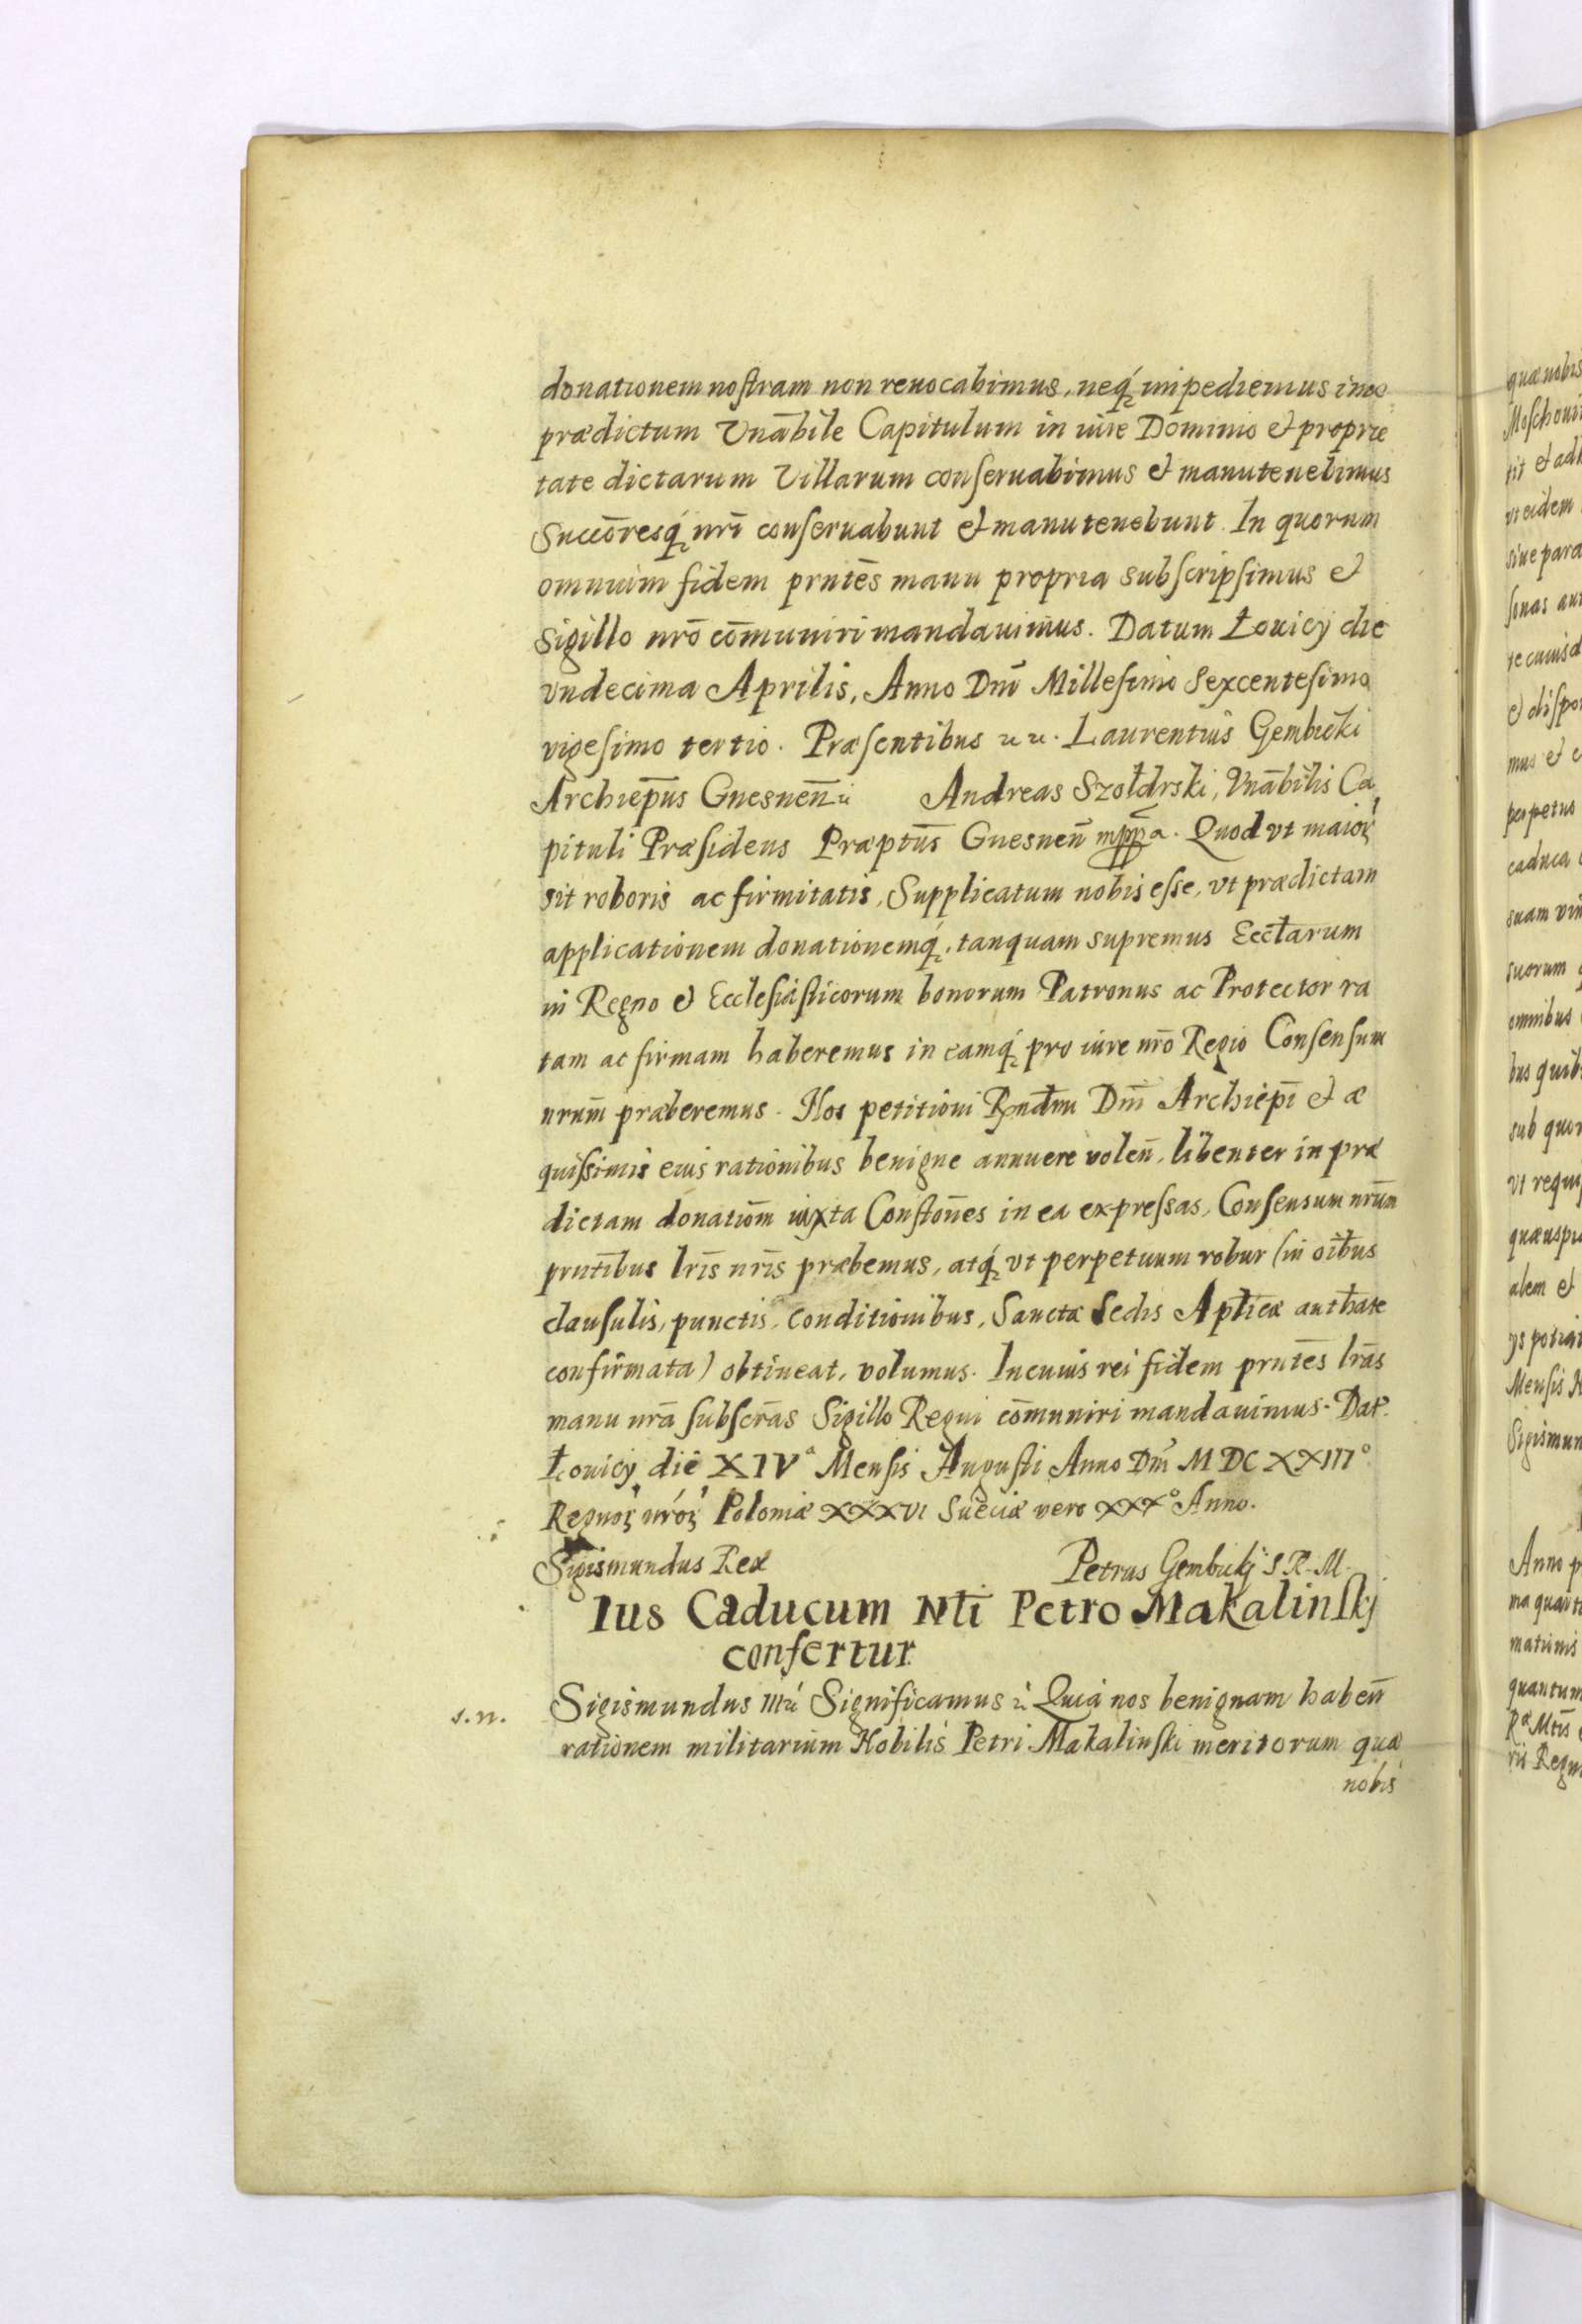 donationem nostram non reuocabimus, neq́ꝫ impediemus imo
prædictum Vnābile Capitulum in iure Dominio et proprie
tate dictarum Villarum conseruabimus et manutenebimus
Succōresq́ꝫ nrī conseruabunt et manutenebunt. In quorum
omnium fidem prntēs manu propria subscripsimus et
Sigillo nrō cōmuniri mandauimus. Datum Łouicÿ die
vndecima Aprilis, Anno Dnī Millesimo Sexcentesimo
vigesimo tertio. Præsentibus etc. etc. Laurentius Gembicki
Archiepūs Gnesnen̄ etc. Andreas Szołdrski, Vnābilis Ca
pituli Præsidens Præptūs Gnesnen̄ mppa. Quod vt maioꝝ
sit roboris ac firmitatis, Supplicatum nobis esse, vt prædictam
applicationem donationemq́ꝫ, tanquam supremus Eccłarum
in Regno et Ecclesiasticorum bonorum Patronus ac Protector ra
tam ac firmam haberemus in eamq́ꝫ pro iure nrō Regio Consensum
nrum̄ præberemus. Nos petitioni Rndm̄i Dnī Archiepī et æ
quissimis eius rationibus benigne annuere volen̄, libenter in præ
dictam donatiōm iuxta Constōnes in ea expressas, Consensum nrūm
prntībus lrīs nrīs præbemus, atq́ꝫ vt perpetuum robur (in oib̄us
clausulis, punctis, conditionibus, Sanctæ Sedis Aplicæ authate
confirmata) obtineat, volumus. In cuius rei fidem prntēs lrās
manu nrā subscrās Sigillo Regni cōmuniri mandauimus. Dat.
Łouicÿ die XIVᵃ Mensis Augusti Anno Dnī MDCXXIIIº
Regnoꝝ nróꝝ Poloniæ XXXVI Sueciæ vero XXXº Anno.
Sigismundus Rex Petrus Gembickj S. R. M.
Ius Caducum Nłi Petro Makalinskj
confertur
s. n.
Sigismundus IIIus etc. Significamus etc. Quia nos benignam haben̄
rationem militarium Nobilis Petri Makalinski meritorum quæ
nobis